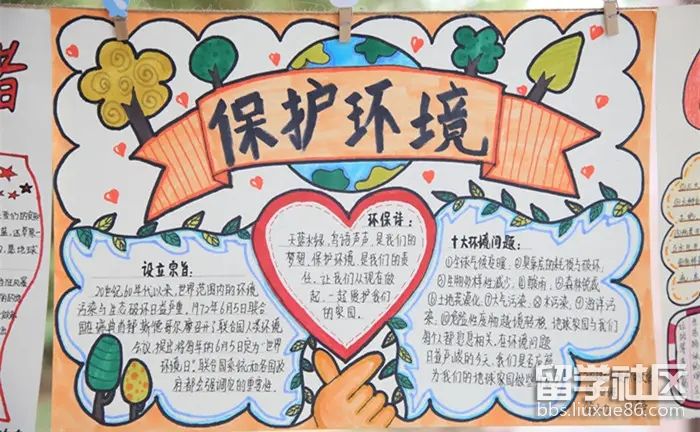 保护环境
设立宗旨:
20世纪60年代以来,世界范围内的环境
污染与生态破坏日益严重,1972年6月5日联合
国在瑞典首都斯德哥尔摩召开了联合国人类环境
会议,提出将每年的6月5日定为"世界
环境日",联合国系统和各国政
府都会强调它的重要
环保诗:
天蓝水绿,鸟语声声,是我们的
梦想,保护环境,是我们的责
任,让我们从现在做
起,一起维护我们
的家园。
十大环境问题:
①全球气候变暖,②臭氧层的耗损与破坏,
③生物多样性减少,④酸雨,⑤森林锐减
⑥土地荒漠化,⑦大气污染,⑧水污染,⑨海洋污
染,⑩危险性废物越境转移,地球家园与我们
每个人都息息相关,在环境问题
日益严峻的今天,我们是否应
为我们的地球家园做些
留学社区
bbs.liuxue86.com